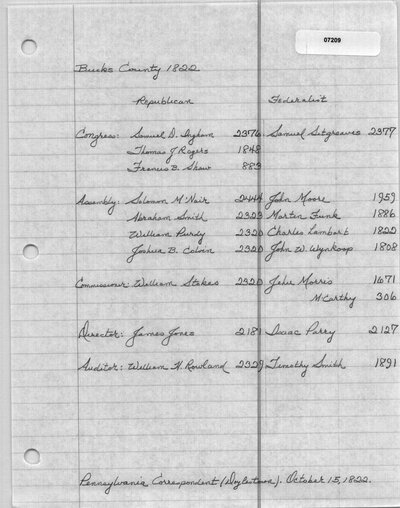 07209
Bucks County 1822
Republican Federalist
Congress: Samuel D. Ingham 2376 Samuel Sitgreaves 2377
Thomas J Rogers 1848
Francis B. Shaw 883
Assembly: Solomon M'Nair 2444 John Moore 1959
Abraham Smith 2323 Martin Funk 1886
William Purdy 2320 Charles Lambart 1822
Joshua B. Calvin 2320 John W. Wynkoop 1808
Commissioner: William Stokes 2320 Jehu Morris 1671
McCarthy 306
Director: James Jones 2181 Isaac Parry 2127
Auditor: William H. Rowland 2329 Timothy Smith 1891
Pennsylvania Correspondent (Doylestown). October 15, 1822.